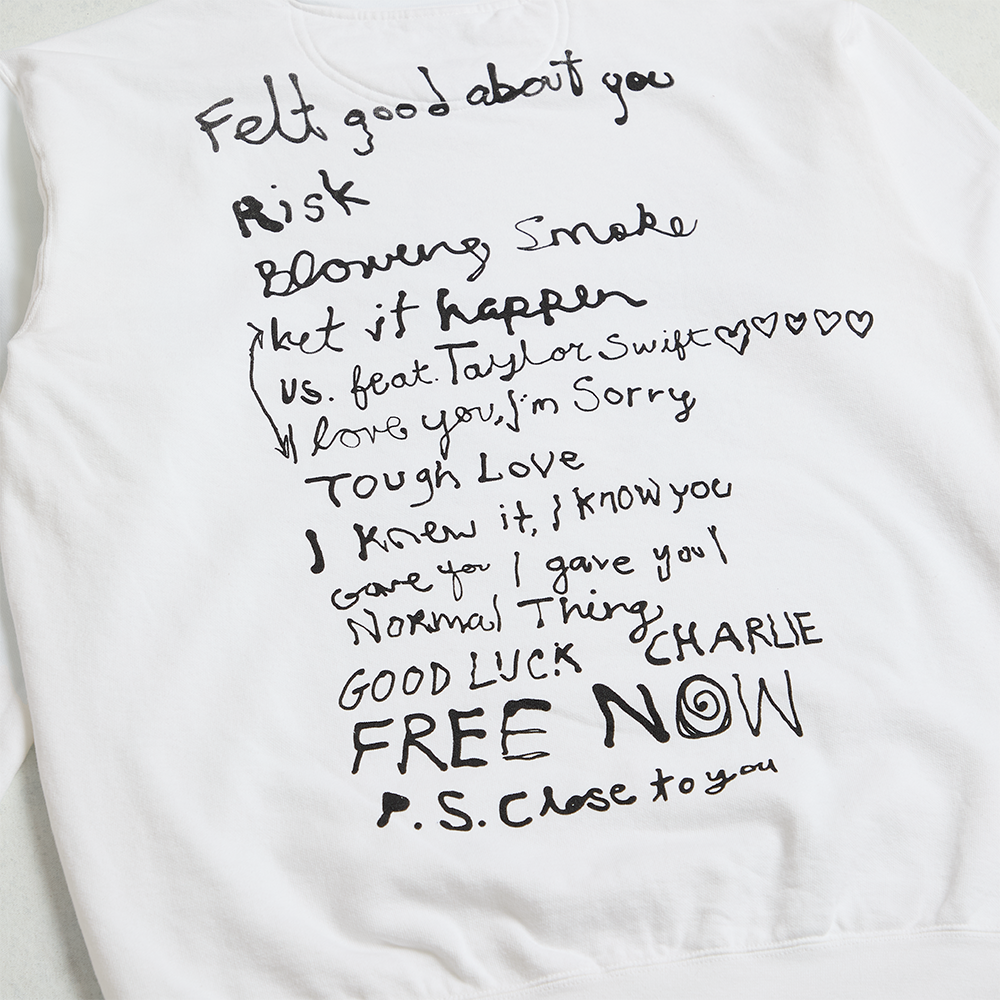 Felt good about you
Risk
Blowing Smoke
Let it happen
us. feat. Taylor Swift ♡♡♡♡♡
I love you, I'm Sorry
Tough Love
I Knew it, I know you
Gave you I gave you I
Normal Thing
GOOD LUCK CHARLIE
FREE NOW
P.S. Close to you